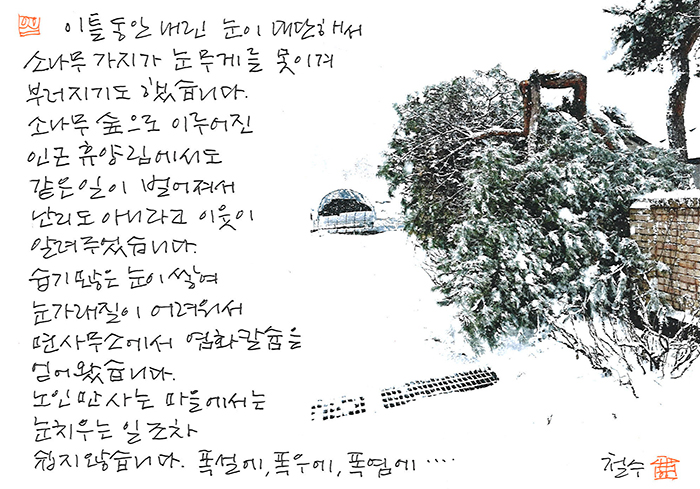 이틀 동안 내린 눈이 대단해서
소나무 가지가 눈무게를 못이겨
부러지기도 했습니다.
소나무 숲으로 이루어진
인근 휴양림에서도
같은일이 벌어져서
난리도 아니라고 이웃이
알려주었습니다.
습기많은 눈이쌓여
눈가래질이 어려워서
면사무소에서 염화칼슘을
얻어왔습니다.
노인만 사는 마을에서는
눈치우는 일조차
쉽지않습니다. 폭설에, 폭우에, 폭염에 ....
철수